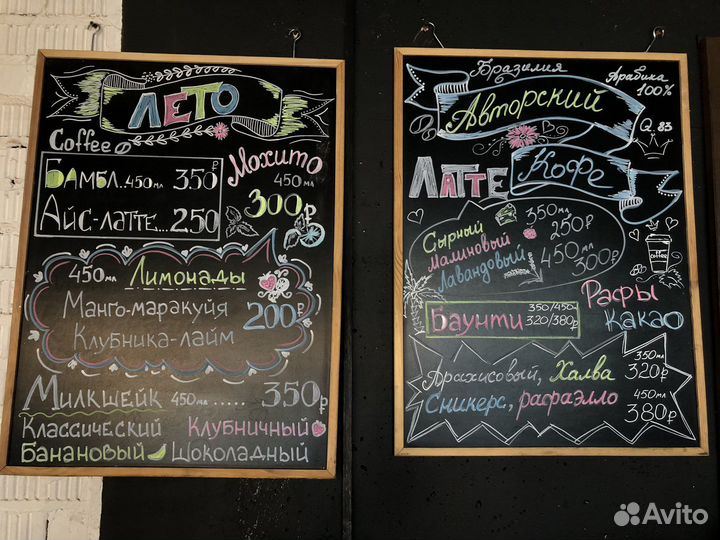 ЛЕТО
Coffee
Бамбл..450мл 350
Айс-латте...250
Мохито
450мл
300₽
450мл Лимонады
Манго-маракуйя
Клубника-лайм
200₽
Милкшейк 450мл.....350₽
Классический Клубничный
Банановый Шоколадный
Бразилия
Арабика
100%
Q.83
Авторский
Кофе
Латте
Сырный
Малиновый
Лавандовый
350мл
250₽
450мл
300₽
Coffee
Баунти 350/450мл
320/380₽
Рафы
Какао
Арахисовый, Халва
Сникерс, рафаэлло
350мл
320₽
450мл
380₽
Avito